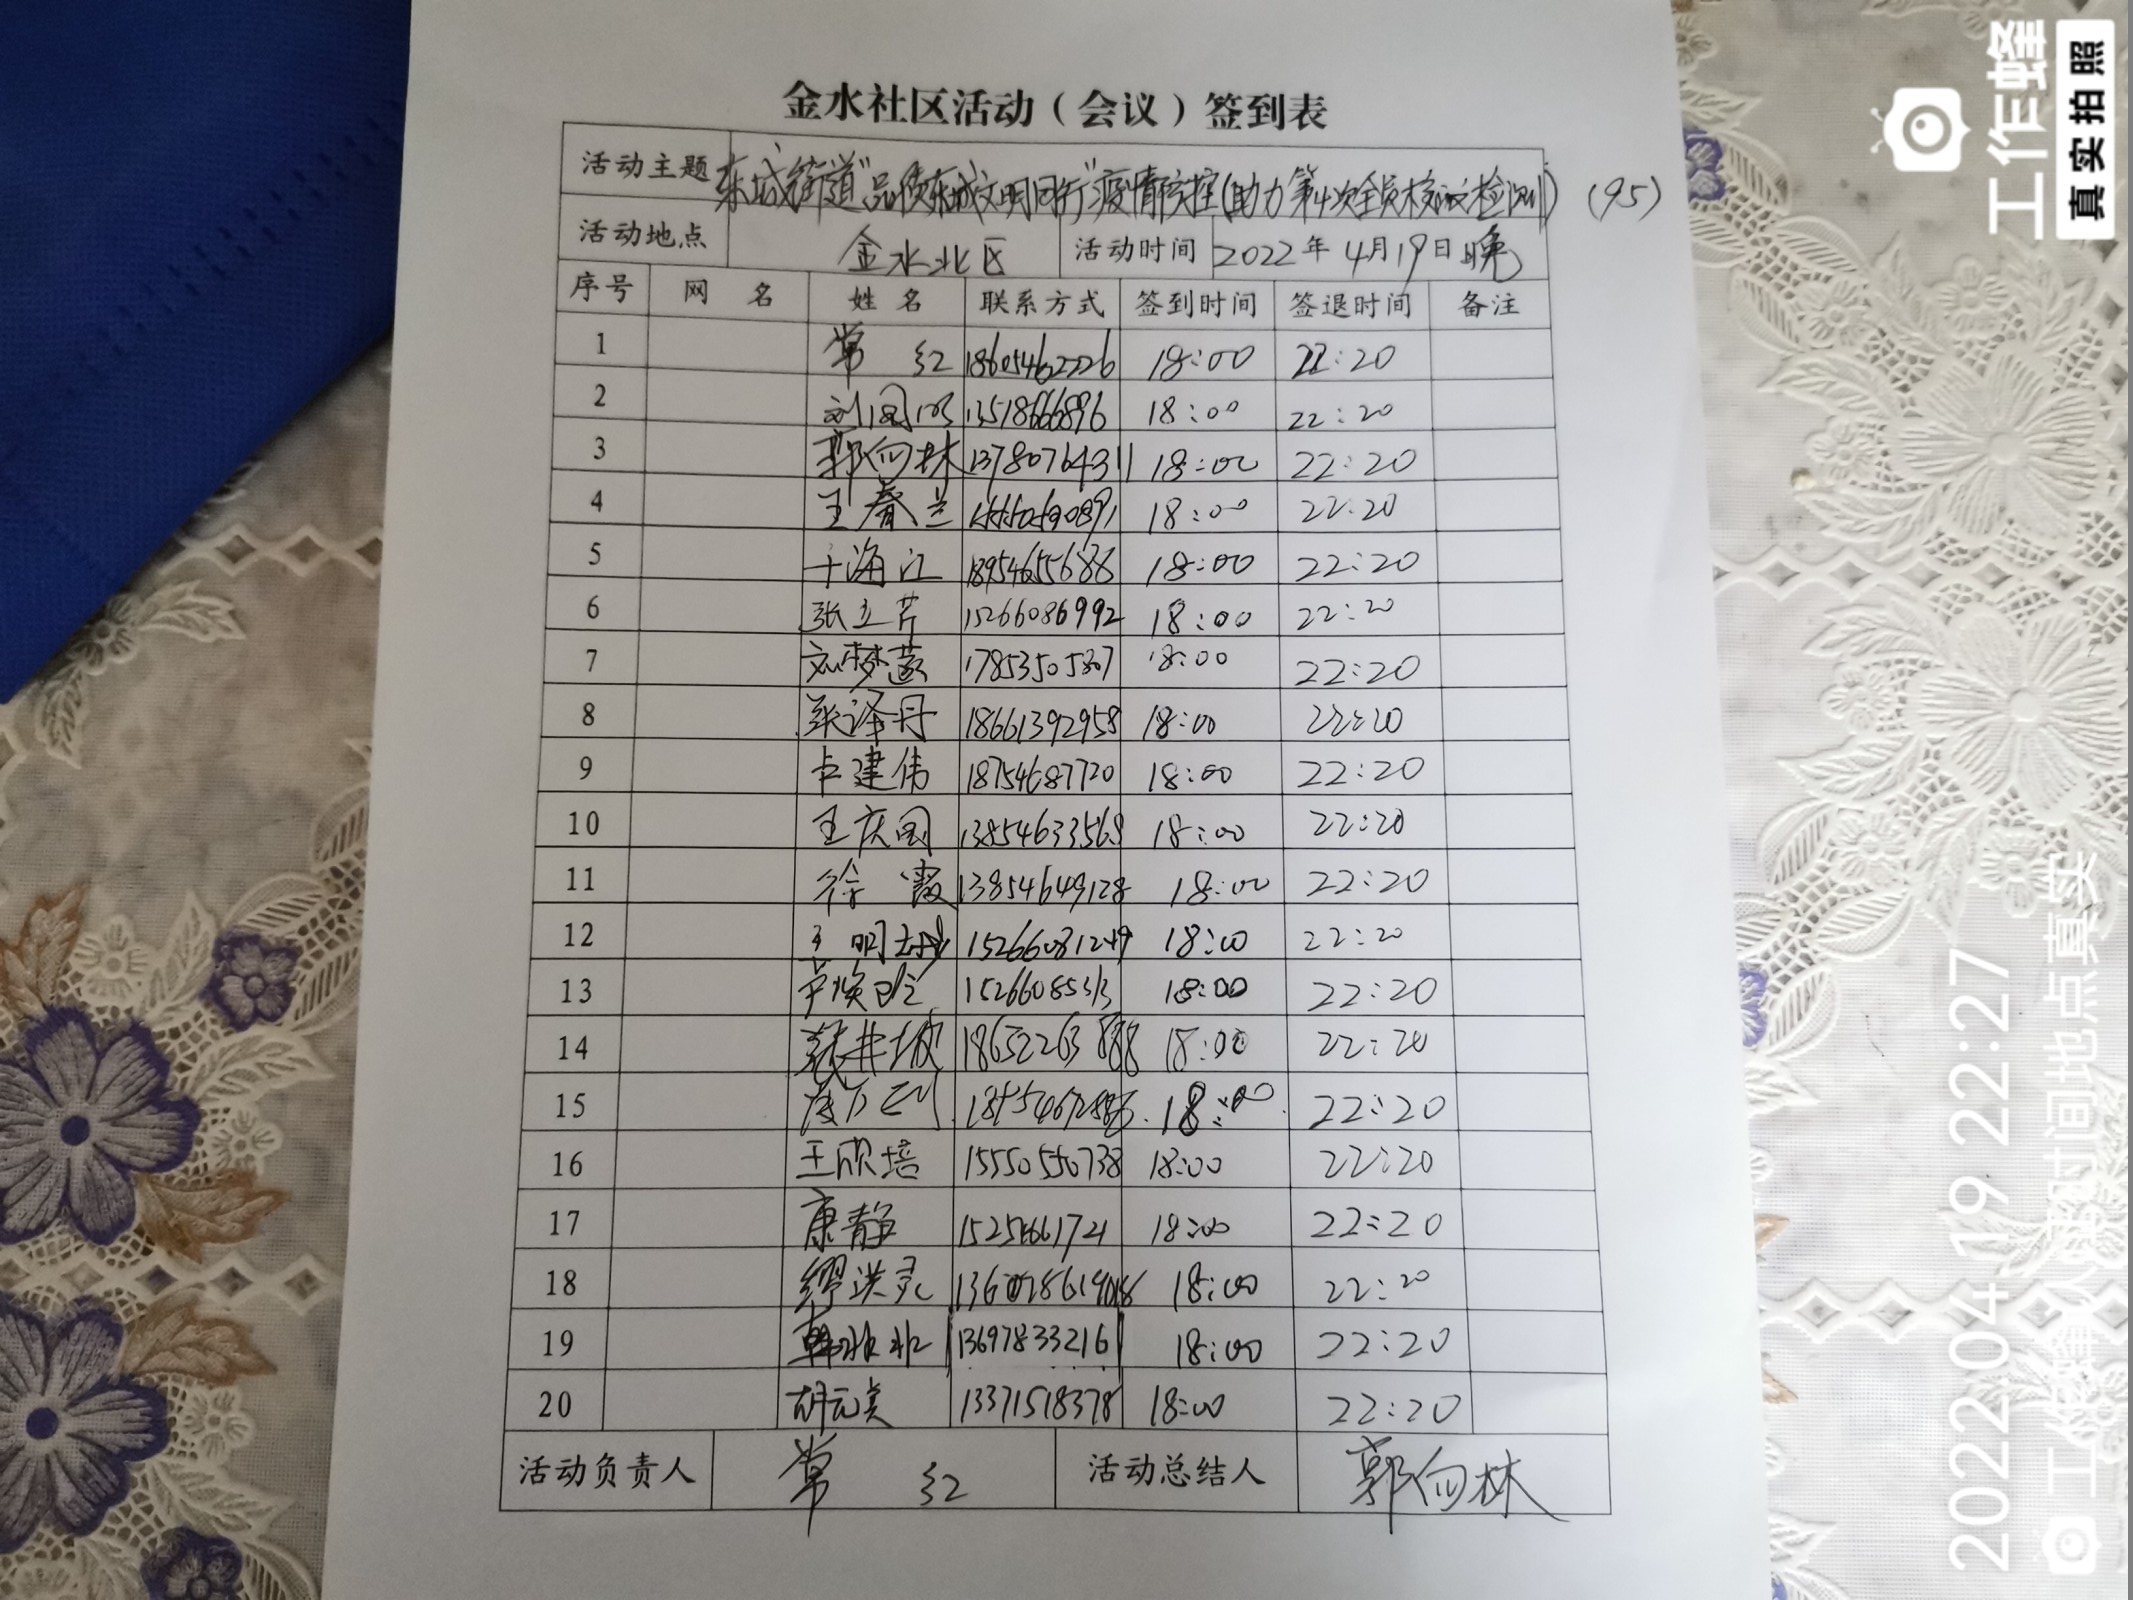 金水社区活动（会议）签到表
活动主题 东城街道"品质东城文明同行"疫情防控(助力第4次全员核酸检测) (95)
活动地点 金水北区 活动时间 2022年4月19日晚
序号 网名 姓名 联系方式 签到时间 签退时间 备注
1 常红 18605462226 18:00 22:20
2 13518666896 18:00 22:20
3 郭向林 13780764311 18:00 22:20
4 王春兰 18:00 22:20
5 于海江 18954655688 18:00 22:20
6 张立芹 15266086992 18:00 22:20
7 17853505307 18:00 22:20
8 张泽丹 18661392958 18:00 22:20
9 卢建伟 18754687720 18:00 22:20
10 王庆国 13854633568 18:00 22:20
11 徐霞 13854649128 18:00 22:20
12 15266081249 18:00 22:20
13 18:00 22:20
14 18:00 22:20
15 18:00 22:20
16 王欣培 15550550738 18:00 22:20
17 康静 18:00 22:20
18 18:00 22:20
19 13697833216 18:00 22:20
20 胡元美 13371518378 18:00 22:20
活动负责人 常红 活动总结人 郭向林
工作蜂
真实拍照
2022.04.19 22:27
工作蜂确认时间地点真实